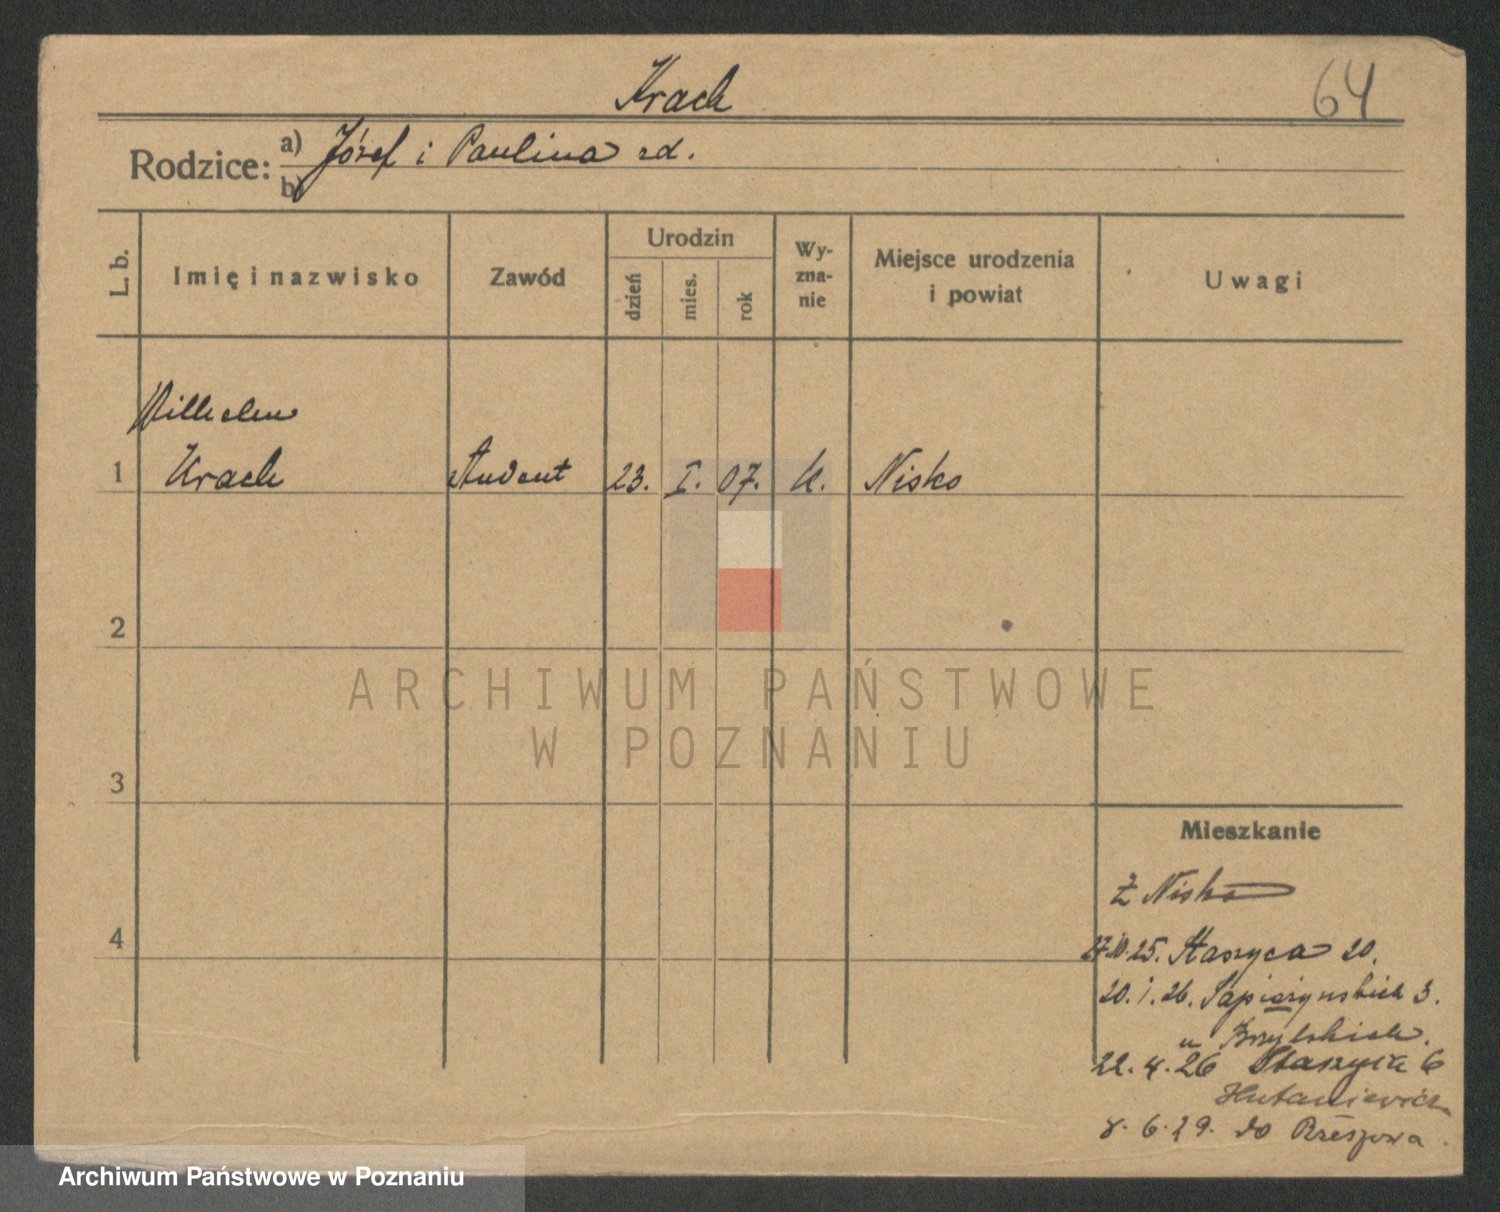 Krach
64
Rodzice: a) Józef i Paulina zd.
b)
L. b.
Imię i nazwisko
Zawód
Urodzin
dzień
mies.
rok
Wy-
zna-
nie
Miejsce urodzenia
i powiat
Uwagi
Wilhelm
1 Krach Student 23. I. 07. k. Nisko
2
3
4
Mieszkanie
Z Niska
27.10.25. Staszyca 20.
20.1.26. Sapieżyńskich 3.
u
22.4.26 Staszyca 6
8.6.29. do Rzeszowa.
ARCHIWUM PAŃSTWOWE
W POZNANIU
Archiwum Państwowe w Poznaniu